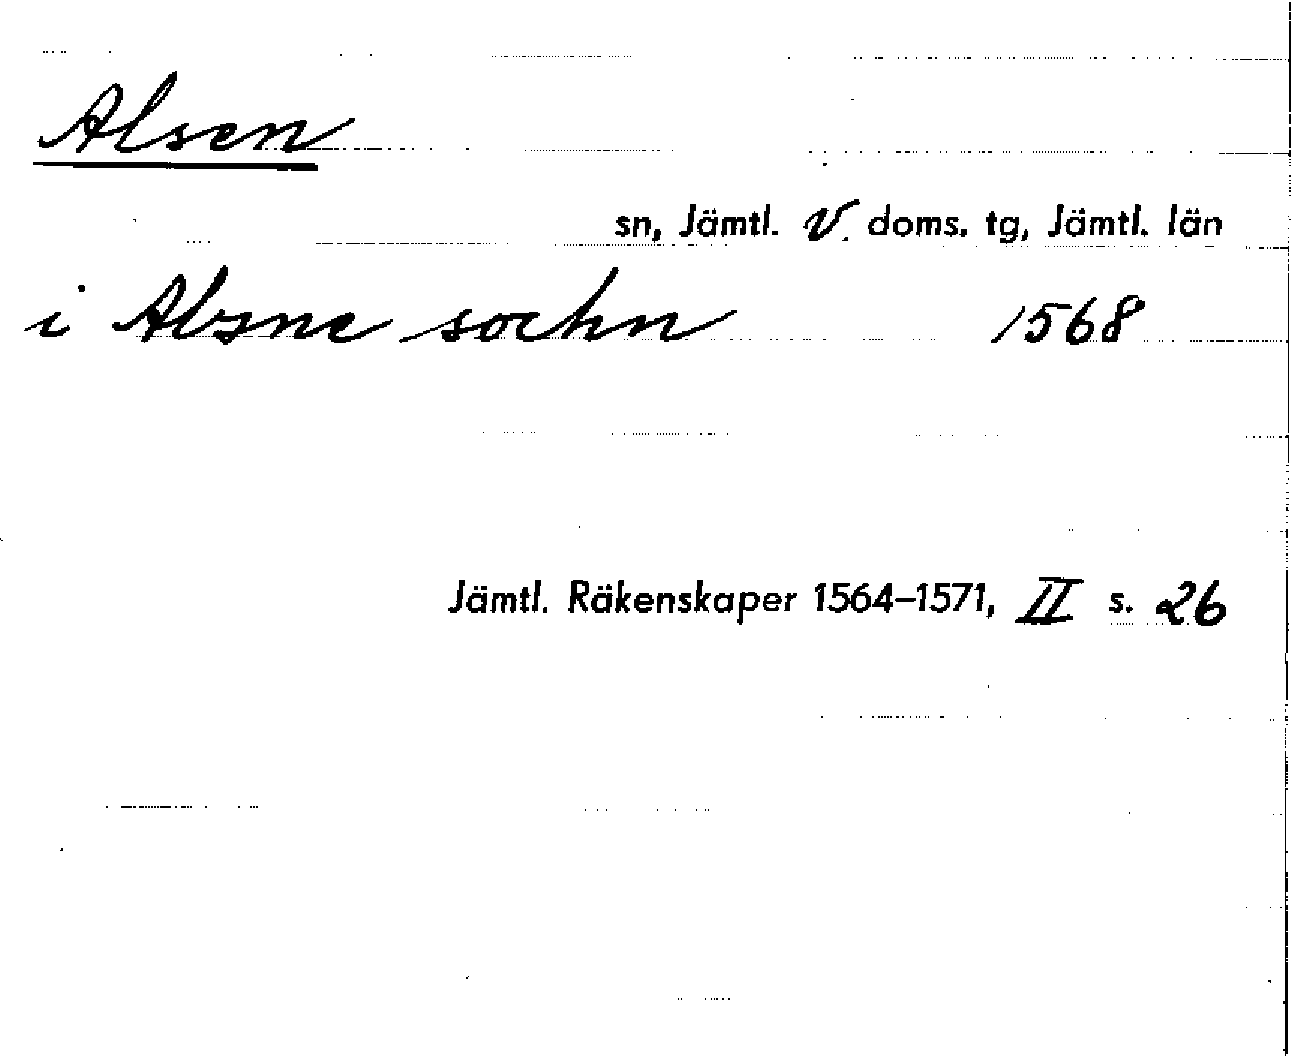 Alsen
sn, Jämtl. V. doms. tg, Jämtl. län
i Alzne sochn 1568
Jämtl. Räkenskaper 1564–1571, II s. 26